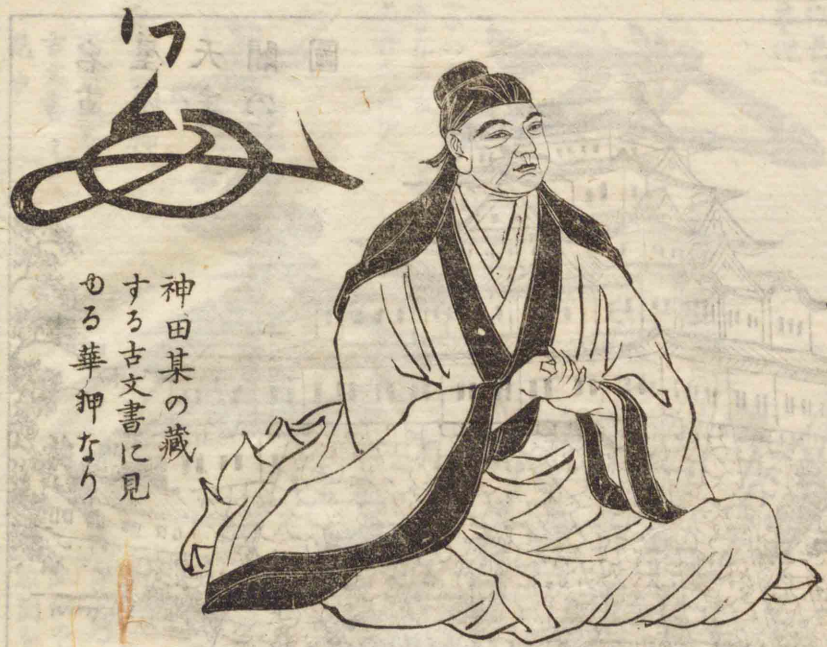 神田某の藏
する古文書に見
ゆる華押なり